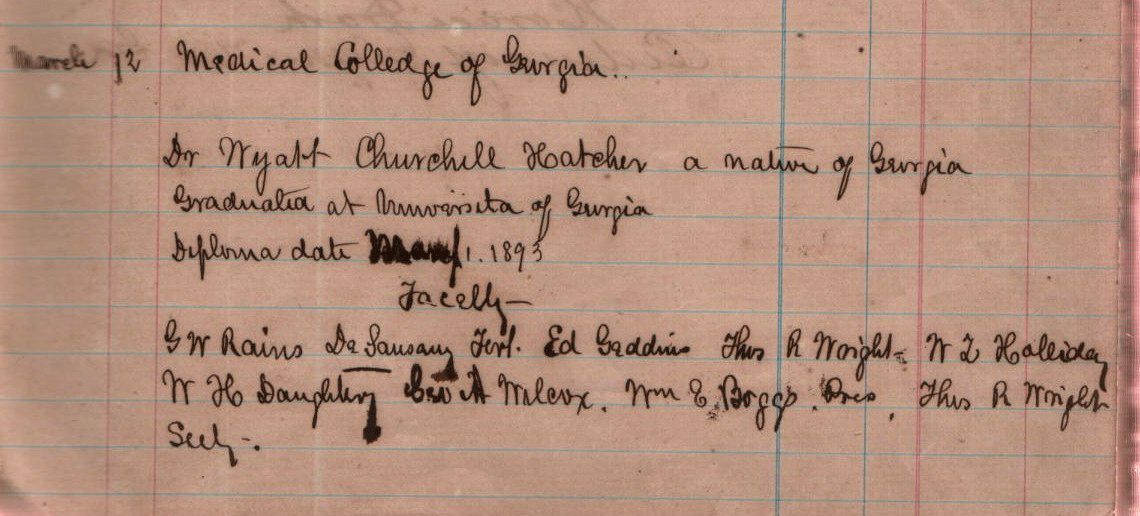 March 12 Medical Colledge of Georgia..
Dr Wyatt Churchill Hatcher a native of Georgia
Graduated at Universita of Gurgia
Diploma date 1. 1893
Facelty —
G W Rains De Sausauy Ford. Ed Geddins Thos R Wright - W L Halliday
W H Daughtry Geo A Wilcox. Wm E. Boggs. Pres, Thos R Wright
Secty -.